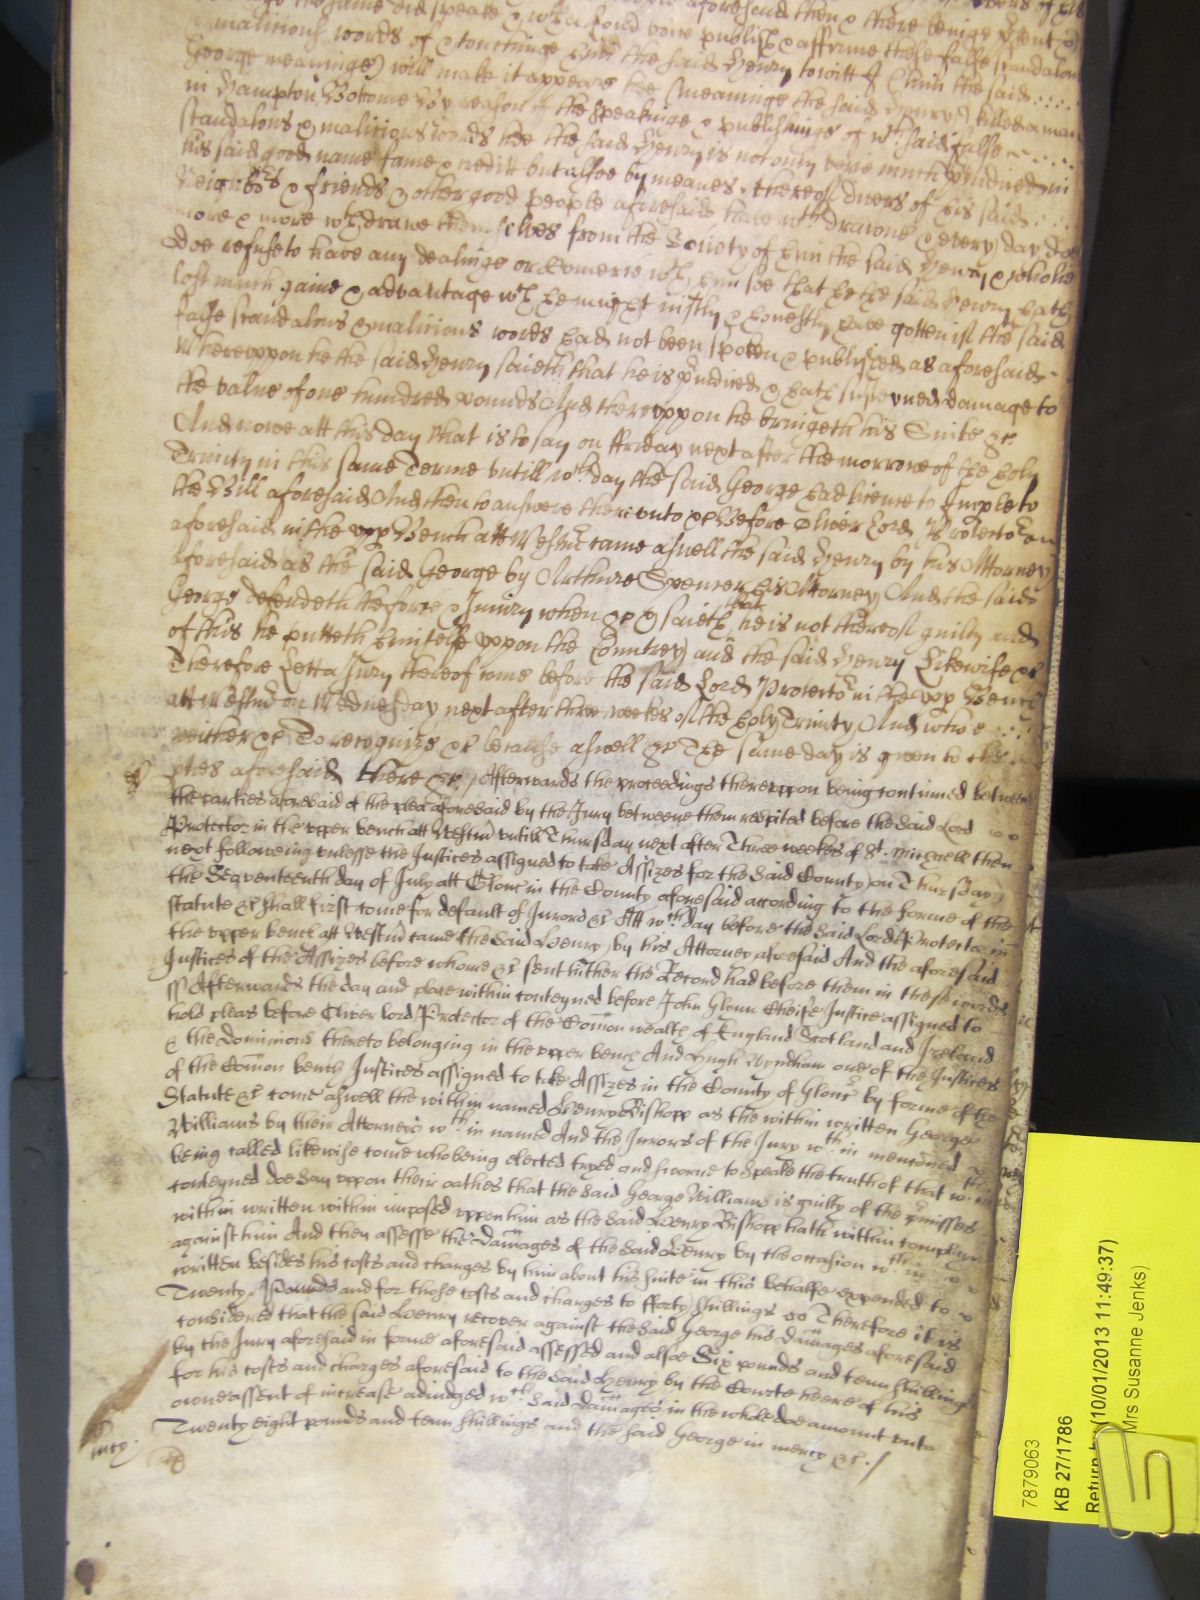 the same did speake & wth a lowd voice publish & affirme these false scandalous
malitious words of & touchinge him the said Henry to witt I (him the said
George meaninge) will make it appeare he (meaninge the said Henry) killed a man
in Hampton Bottome By reason of the speakinge & publishinge of wch said false
scandalous & malitious words hee the said Henry is not only very much preiudiced in
his said good name fame & creditt but alsoe by meanes thereof divers of his said
Neighbors & friends & other good people aforesaid have wthdrawne & every day doe
more & more wthdrawe themselves from the Society of him the said Henry & wholie
doe refuse to have any dealinge or Comerce wth him soe that he the said Henry hath
lost much gaine & advantage wch he might iustly & honestly have gotten if the said
false scandalous & malitious words had not been spoken & published as aforesaid
Whereuppon he the said Henry saieth that he is preiudiced & hath susteyned damage to
the value of one hundred pounds And thereuppon he bringeth his Suite &c.
And nowe att this day that is to say on ffriday next after the morrowe of the holy
Trinity in this same Terme untill wch day the said George had licence to Imple to
the Bill aforesaid And then to answere thereunto &c Before Oliver Lord Protector
aforesaid in the upp Bench att Westmr came aswell the said Henry by his Attorney
aforesaid as the said George by Arthure Spencer his Attorney And the said
George defendeth the force & Iniury when &c & saieth that he is not thereof guilty and
of this he putteth himselfe uppon the Countrey and the said Henry Likewise &c
Therefore Lett a Jury thereof come before the said Lord Protector in the upp Bench
att Westmr on Wednesday next after three weekes of the holy Trinity And who
neither &c To recognize &c because aswell &c The same day is given to the
pties aforesaid there &c. / Afterwards the proceedings thereuppon being continued between
the parties aforesaid of the plea aforesaid by the Jury betweene them respited before the said Lord
Protector in the upper bench att Westmr untill Thursday next after Three weekes of St. Michaell then
next following unlesse the Justices assigned to take Assizes for the said County on Thursday
the Seaventeenth day of July att Glouc in the County aforesaid according to the forme of the
statute &c shall first come for default of Jurors &c Att wch day before the said Lord Protector in
the upper bench att Westmr came the said Henry by his Attorney aforesaid And the aforesaid
Justices of the Assizes before whome &c sent hither the Record had before them in these words
ss Afterwards the day and place within conteyned before John Glynn Cheife Justice assigned to
hold pleas before Oliver lord Protector of the Comon wealth of England Scotland and Ireland
& the Dominions thereto belonging in the upper bench And Hugh Wyndham one of the Justices
of the Comon bench Justices assigned to take Assizes in the County of Glouc by forme of the
Statute &c come aswell the within named Henry Bishopp as the within written George
Williams by their Attorneys wthin named And the Jurors of the Jury wthin mentioned
being called likewise come who being elected tryed and sworne to speake the truth of that
conteyned doe say uppon their oathes that the said George Williams is guilty of the premisses
within written within imposed uppon him as the said Henry Bishopp hath within
against him And then assesse the damages of the said Henry by the occasion wthin
written besides his costs and charges by him about his suite in this behalfe expended to
Twenty Pounds and for those costs and charges to fforty shillings Therefore it is
considered that the said Henry recover against the said George his damages aforesaid
by the Jury aforesaid in forme aforesaid assessed and alsoe Six pounds and tenn shillings
for his costs and charges aforesaid to the said Henry by the Courte heere of his
owne assent of increase adiudged wch said damages in the whole doe amount unto
Twenty eight pounds and tenn shillings and the said George in mercy &c. /
mcy.
7879063
KB 27/1786
Return by (10/01/2013 11:49:37)
Mrs Susanne Jenks)